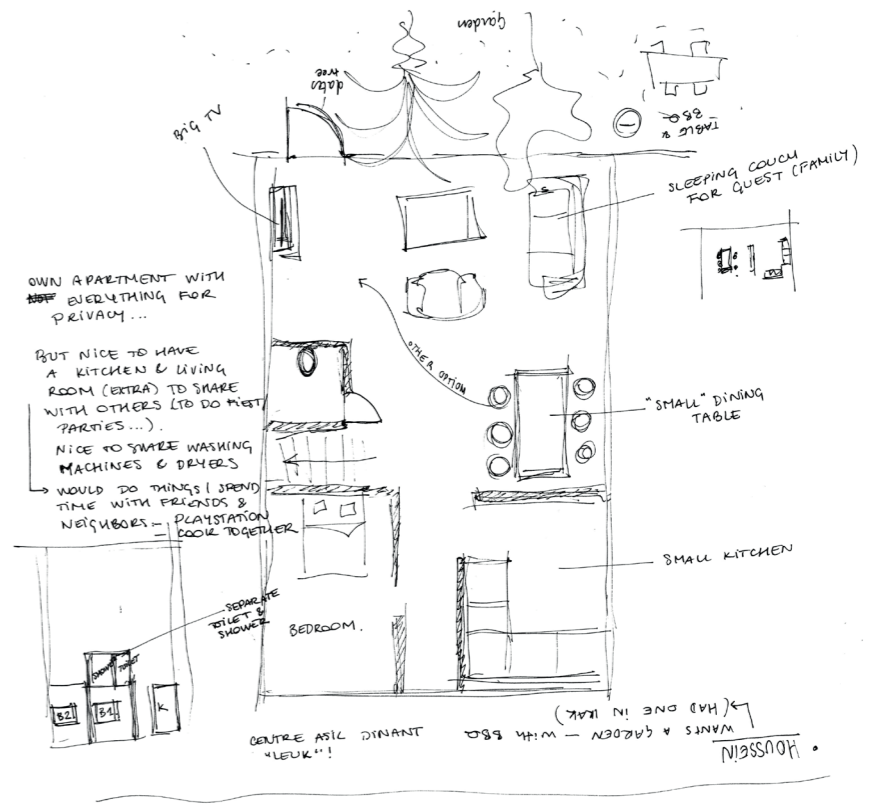 Garden
dates
tree
BIG TV
TABLE &
BBQ
SLEEPING COUCH
FOR GUEST (FAMILY)
OWN APARTMENT WITH
NOT EVERYTHING FOR
PRIVACY...
BUT NICE TO HAVE
A KITCHEN & LIVING
ROOM (EXTRA) TO SHARE
WITH OTHERS (TO DO FIEST
PARTIES...).
NICE TO SHARE WASHING
MACHINES & DRYERS
WOULD DO THINGS / SPEND
TIME WITH FRIENDS &
NEIGHBORS - PLAYSTATION
- COOK TOGETHER
OTHER OPTION
"SMALL" DINING
TABLE
SMALL KITCHEN
BEDROOM.
SEPARATE
TOILET &
SHOWER
SHOWER
TOILET
B2
B1
K
CENTRE ASIL DINANT
"LEUK"!
• HOUSSEIN
WANTS A GARDEN - WITH BBQ
(HAD ONE IN IRAK)